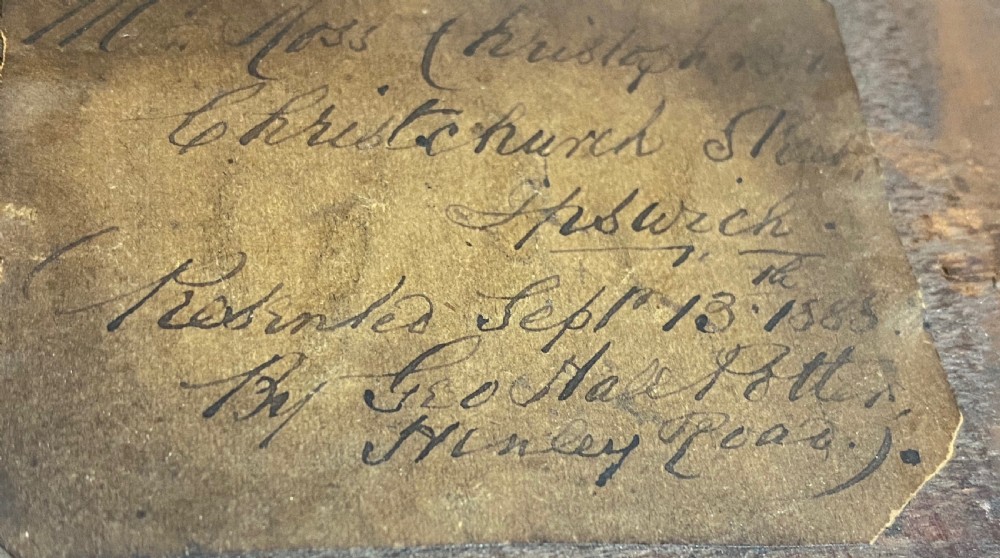 Mr. Moss Christopherson
Christchurch Street
Ipswich.
(Presented Septr 13th 1888.
By Geo Hall Potter,
Henley Road.).